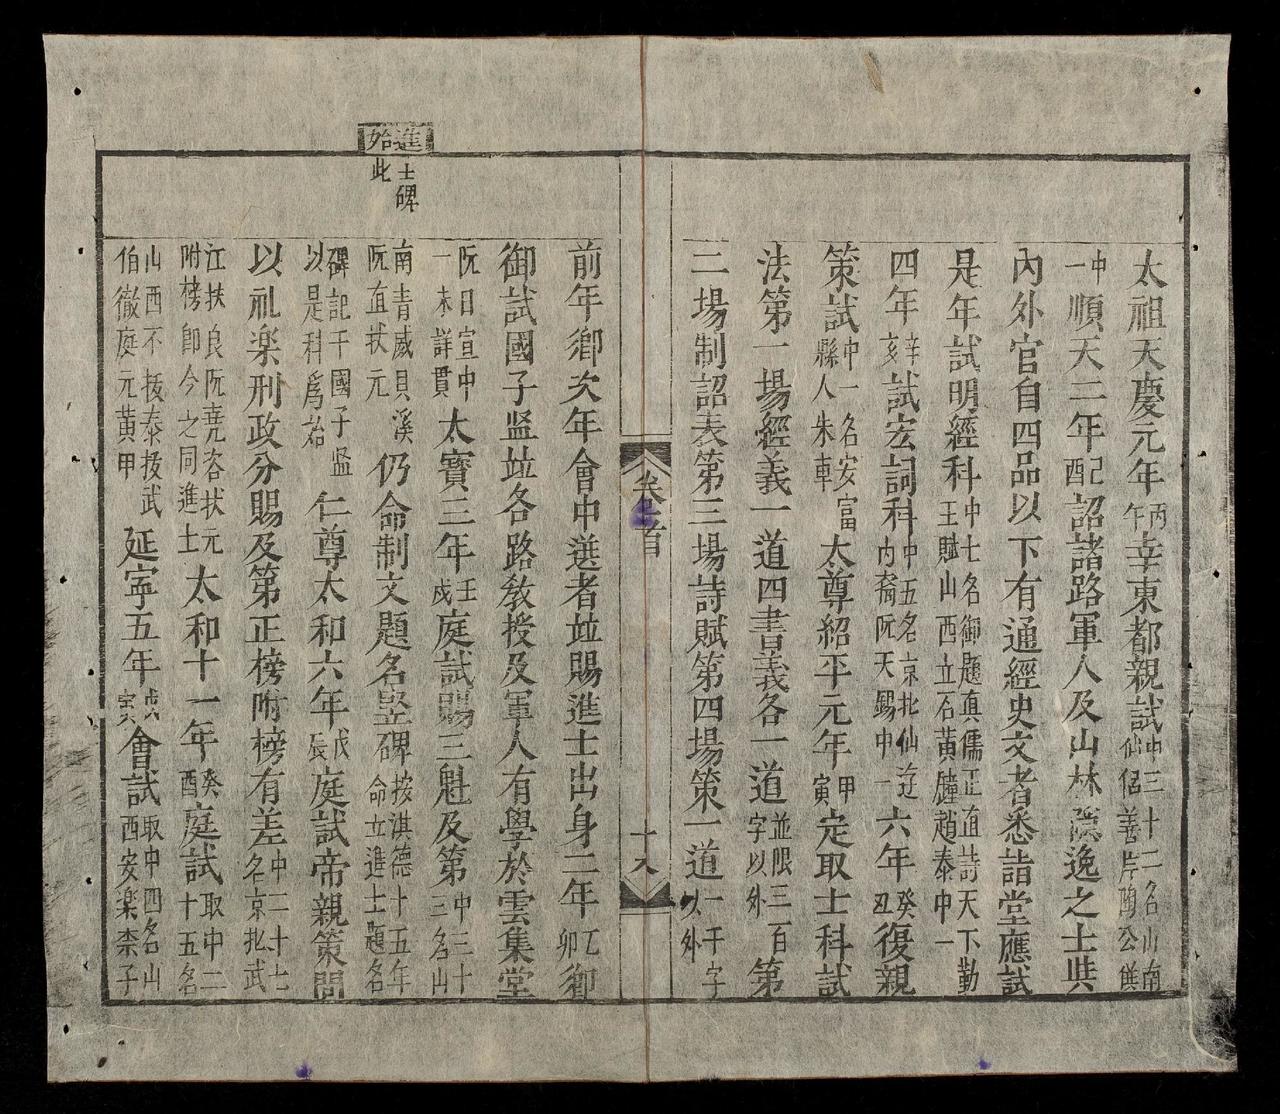 太祖天慶元年丙午幸東都親試中三十二名山南仙侶善片陶公僎
中一順天二年己酉詔諸路軍人及山林隱逸之士與
內外官自四品以下有通經史文者悉詣堂應試
是年試明經科中七名御題真儒正直詩天下勤王賦山西立石黃鐘趙泰中一
四年辛亥試宏詞科中五名京北仙遊內裔阮天錫中一六年癸丑復親
策試中名安富縣人朱車太尊紹平元年甲寅定取士科試
法第一場經義一道四書義各一道並限三百字以外第
二場制詔表第三場詩賦第四場策一道一千字以外
卷首
十八
前年鄉次年會中選者並賜進士出身二年乙卯御
御試國子監並各路教授及軍人有學於雲集堂
阮日宣中一未詳貫太寶三年壬戌庭試賜三魁及第中三十三名山
南青威貝溪阮直狀元仍命制文題名竪碑按淇德十五年命立進士題名
碑記于國子監以是科爲始仁尊太和六年戊辰庭試帝親策問
進士碑始此
以礼楽刑政分賜及第正榜附榜有差中二十七名京北武
江扶良阮堯咨狀元附榜卽今之同進士太和十一年癸酉庭試取中二十五名
山西不抜泰抜武伯徹庭元黃甲延寧五年戊寅會試取中四名山西安楽柰子